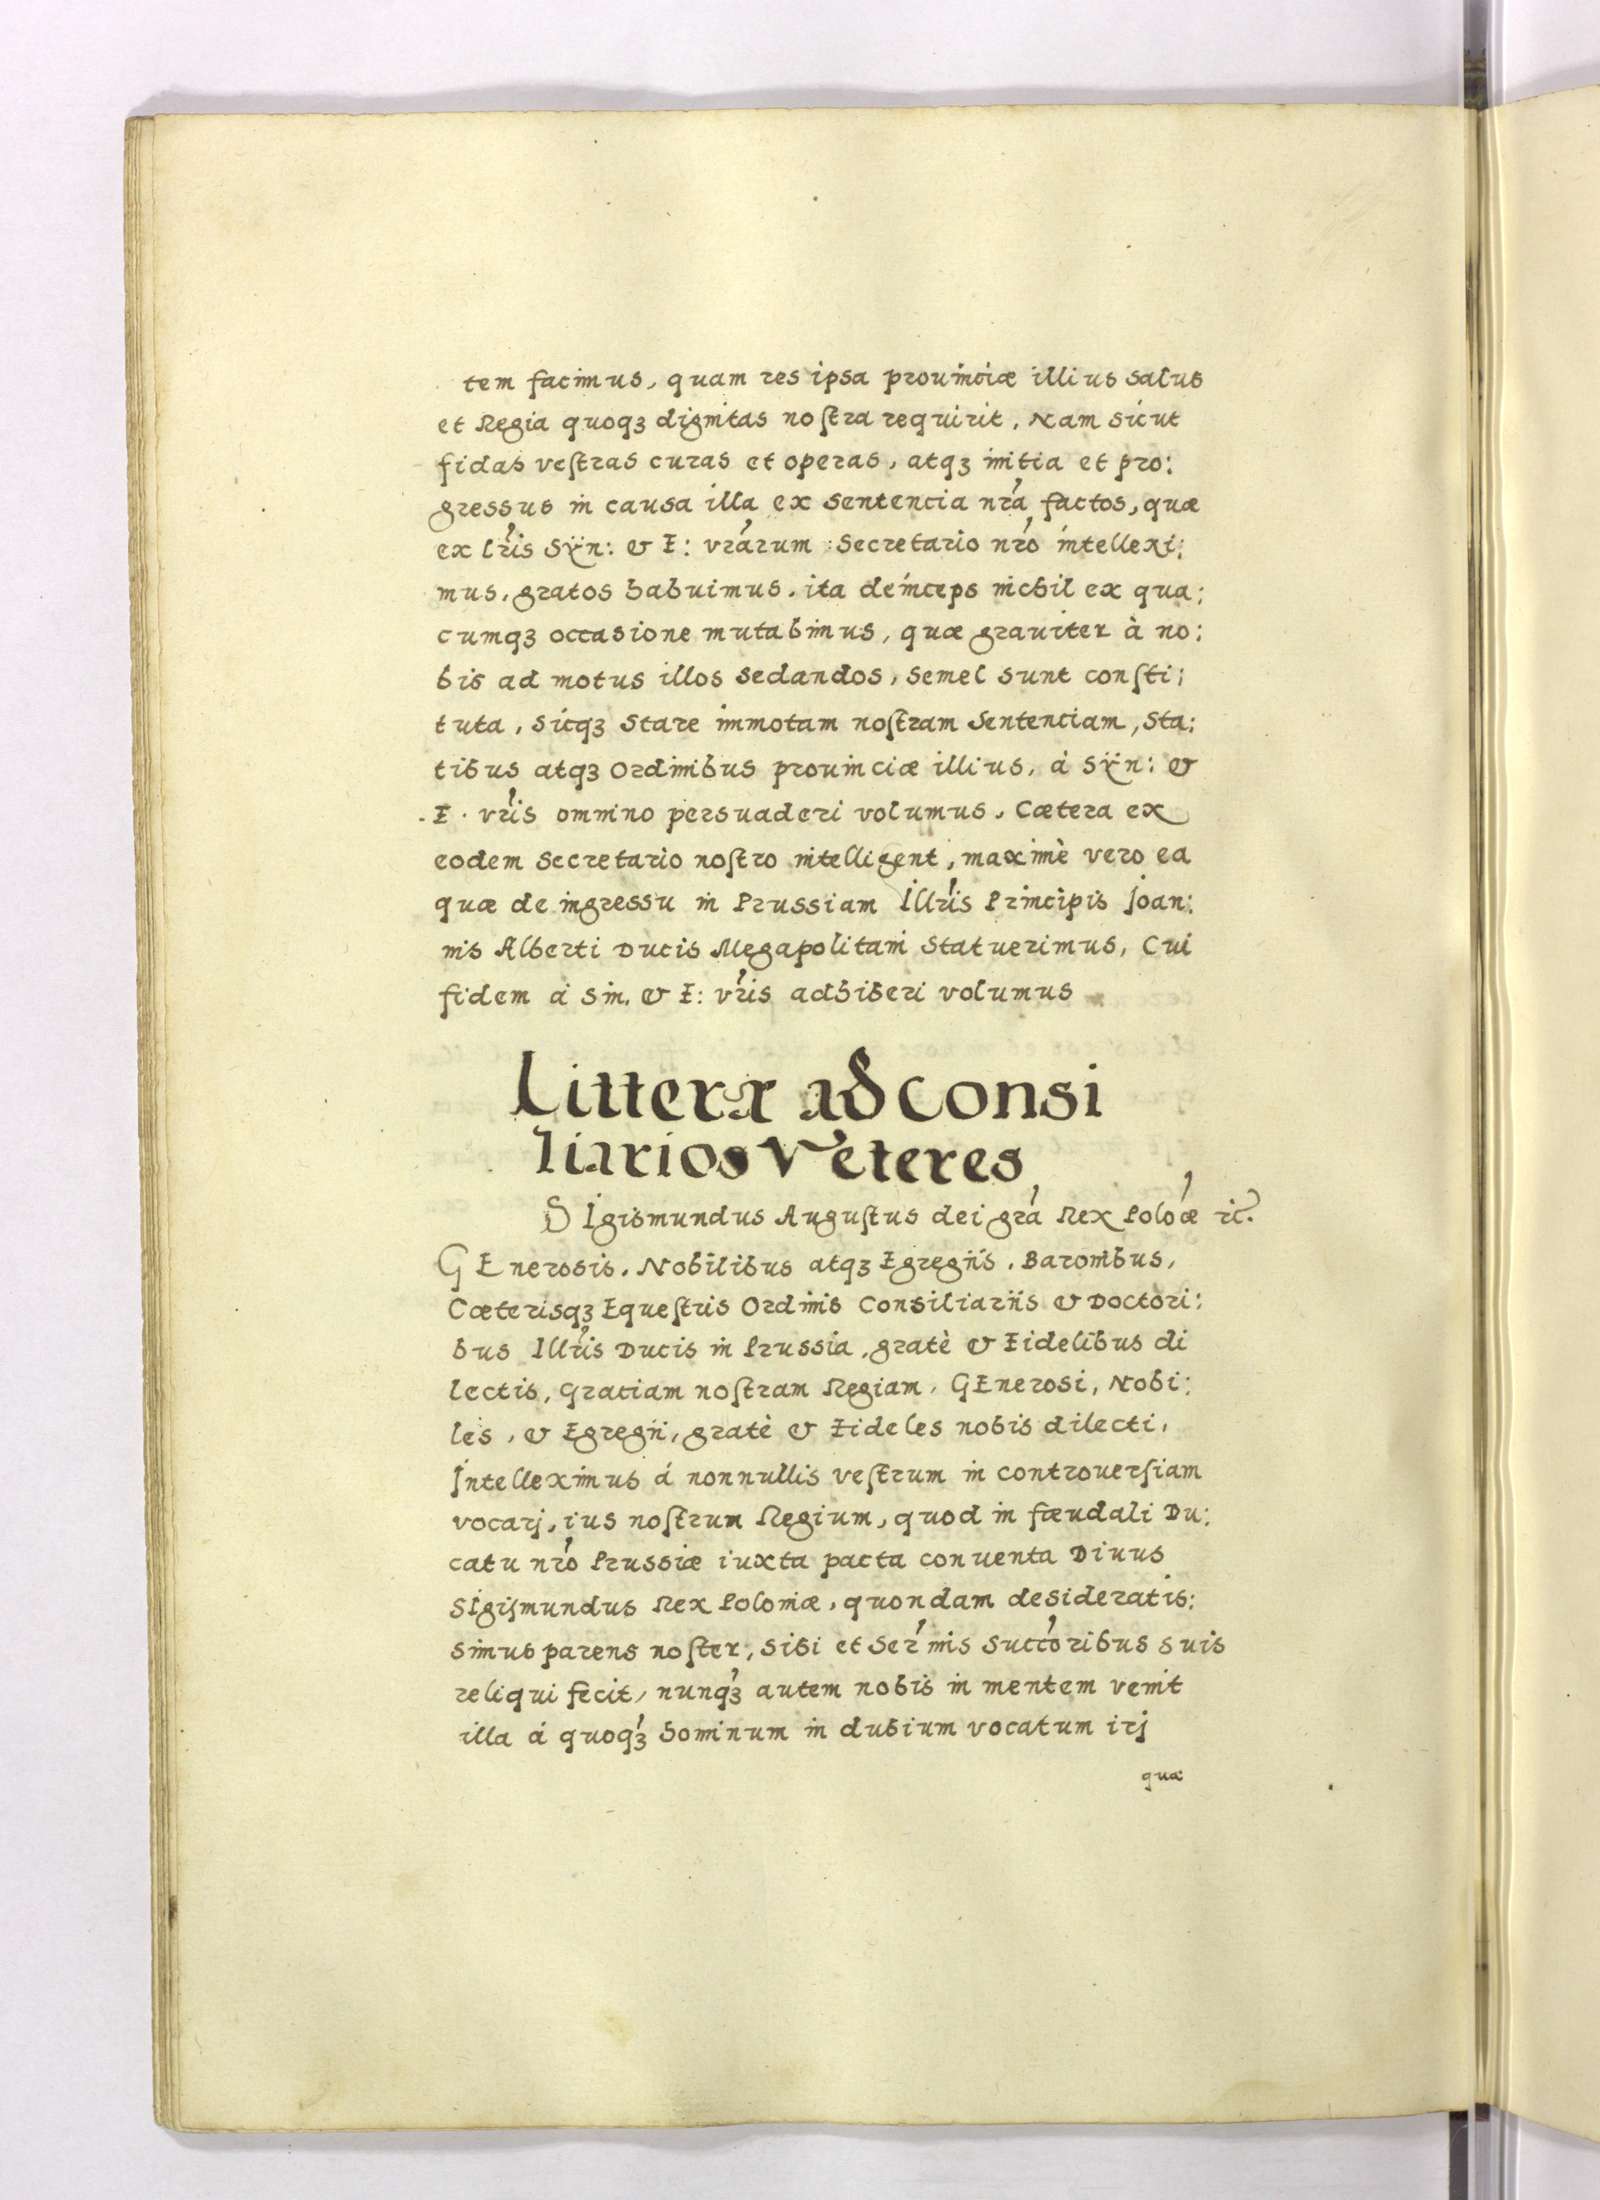 tem facimus, quam res ipsa prouinciæ illius salus
et Regia quoqꝫ dignitas noſtra requirit. Nam sicut
fidas veſtras curas et operas, atqꝫ initia et pro:
gressus in causa illa ex sentencia nrá factos, quæ
ex lrís Sÿn: & F: vrárum Secretario nró intellexi:
mus, gratos habuimus. ita deinceps nichil ex qua:
cumqꝫ occasione mutabimus, quæ grauiter à no:
bis ad motus illos sedandos, semel sunt conſti:
tuta, sicqꝫ stare immotam noſtram Sententiam, Sta:
tibus atqꝫ Ordinibus prouinciæ illius, á Sÿn: &
F. vrís omnino persuaderi volumus. Cætera ex
eodem Secretario noſtro intelligent, maximè vero ea
quæ de ingressu in Prussiam Illrís Principis Joan:
nis Alberti Ducis Megapolitani statuerimus, Cui
fidem á Sin. & F: vrís adhiberi volumus
Litteræ ad Consi
liarios Veteres
SIgismundus Auguſtus dei grá Rex Polóæ ꝛc.
GEnerosis. Nobilibus atqꝫ Egregiis. Baronibus,
Cæterisqꝫ Equeſtris Ordinis Consiliariis & Doctori:
bus Illrís Ducis in Prussia, gratè & Fidelibus di
lectis, Gratiam noſtram Regiam. GEnerosi, Nobi:
les, & Egregii, gratè & Fideles nobis dilecti,
Intelleximus á nonnullis veſtrum in controuerſiam
vocarj, ius noſtrum Regium, quod in fœudali Du:
catu nró Prussiæ iuxta pacta conuenta Diuus
SIgismundus Rex Poloniæ, quondam desideratis:
simus parens noſter, sibi et Seŕmis Succóribus suis
reliqui fecit, nunqꝫ́ autem nobis in mentem venit
illa á quoqꝫ́ hominum in dubium vocatum irj
quæ